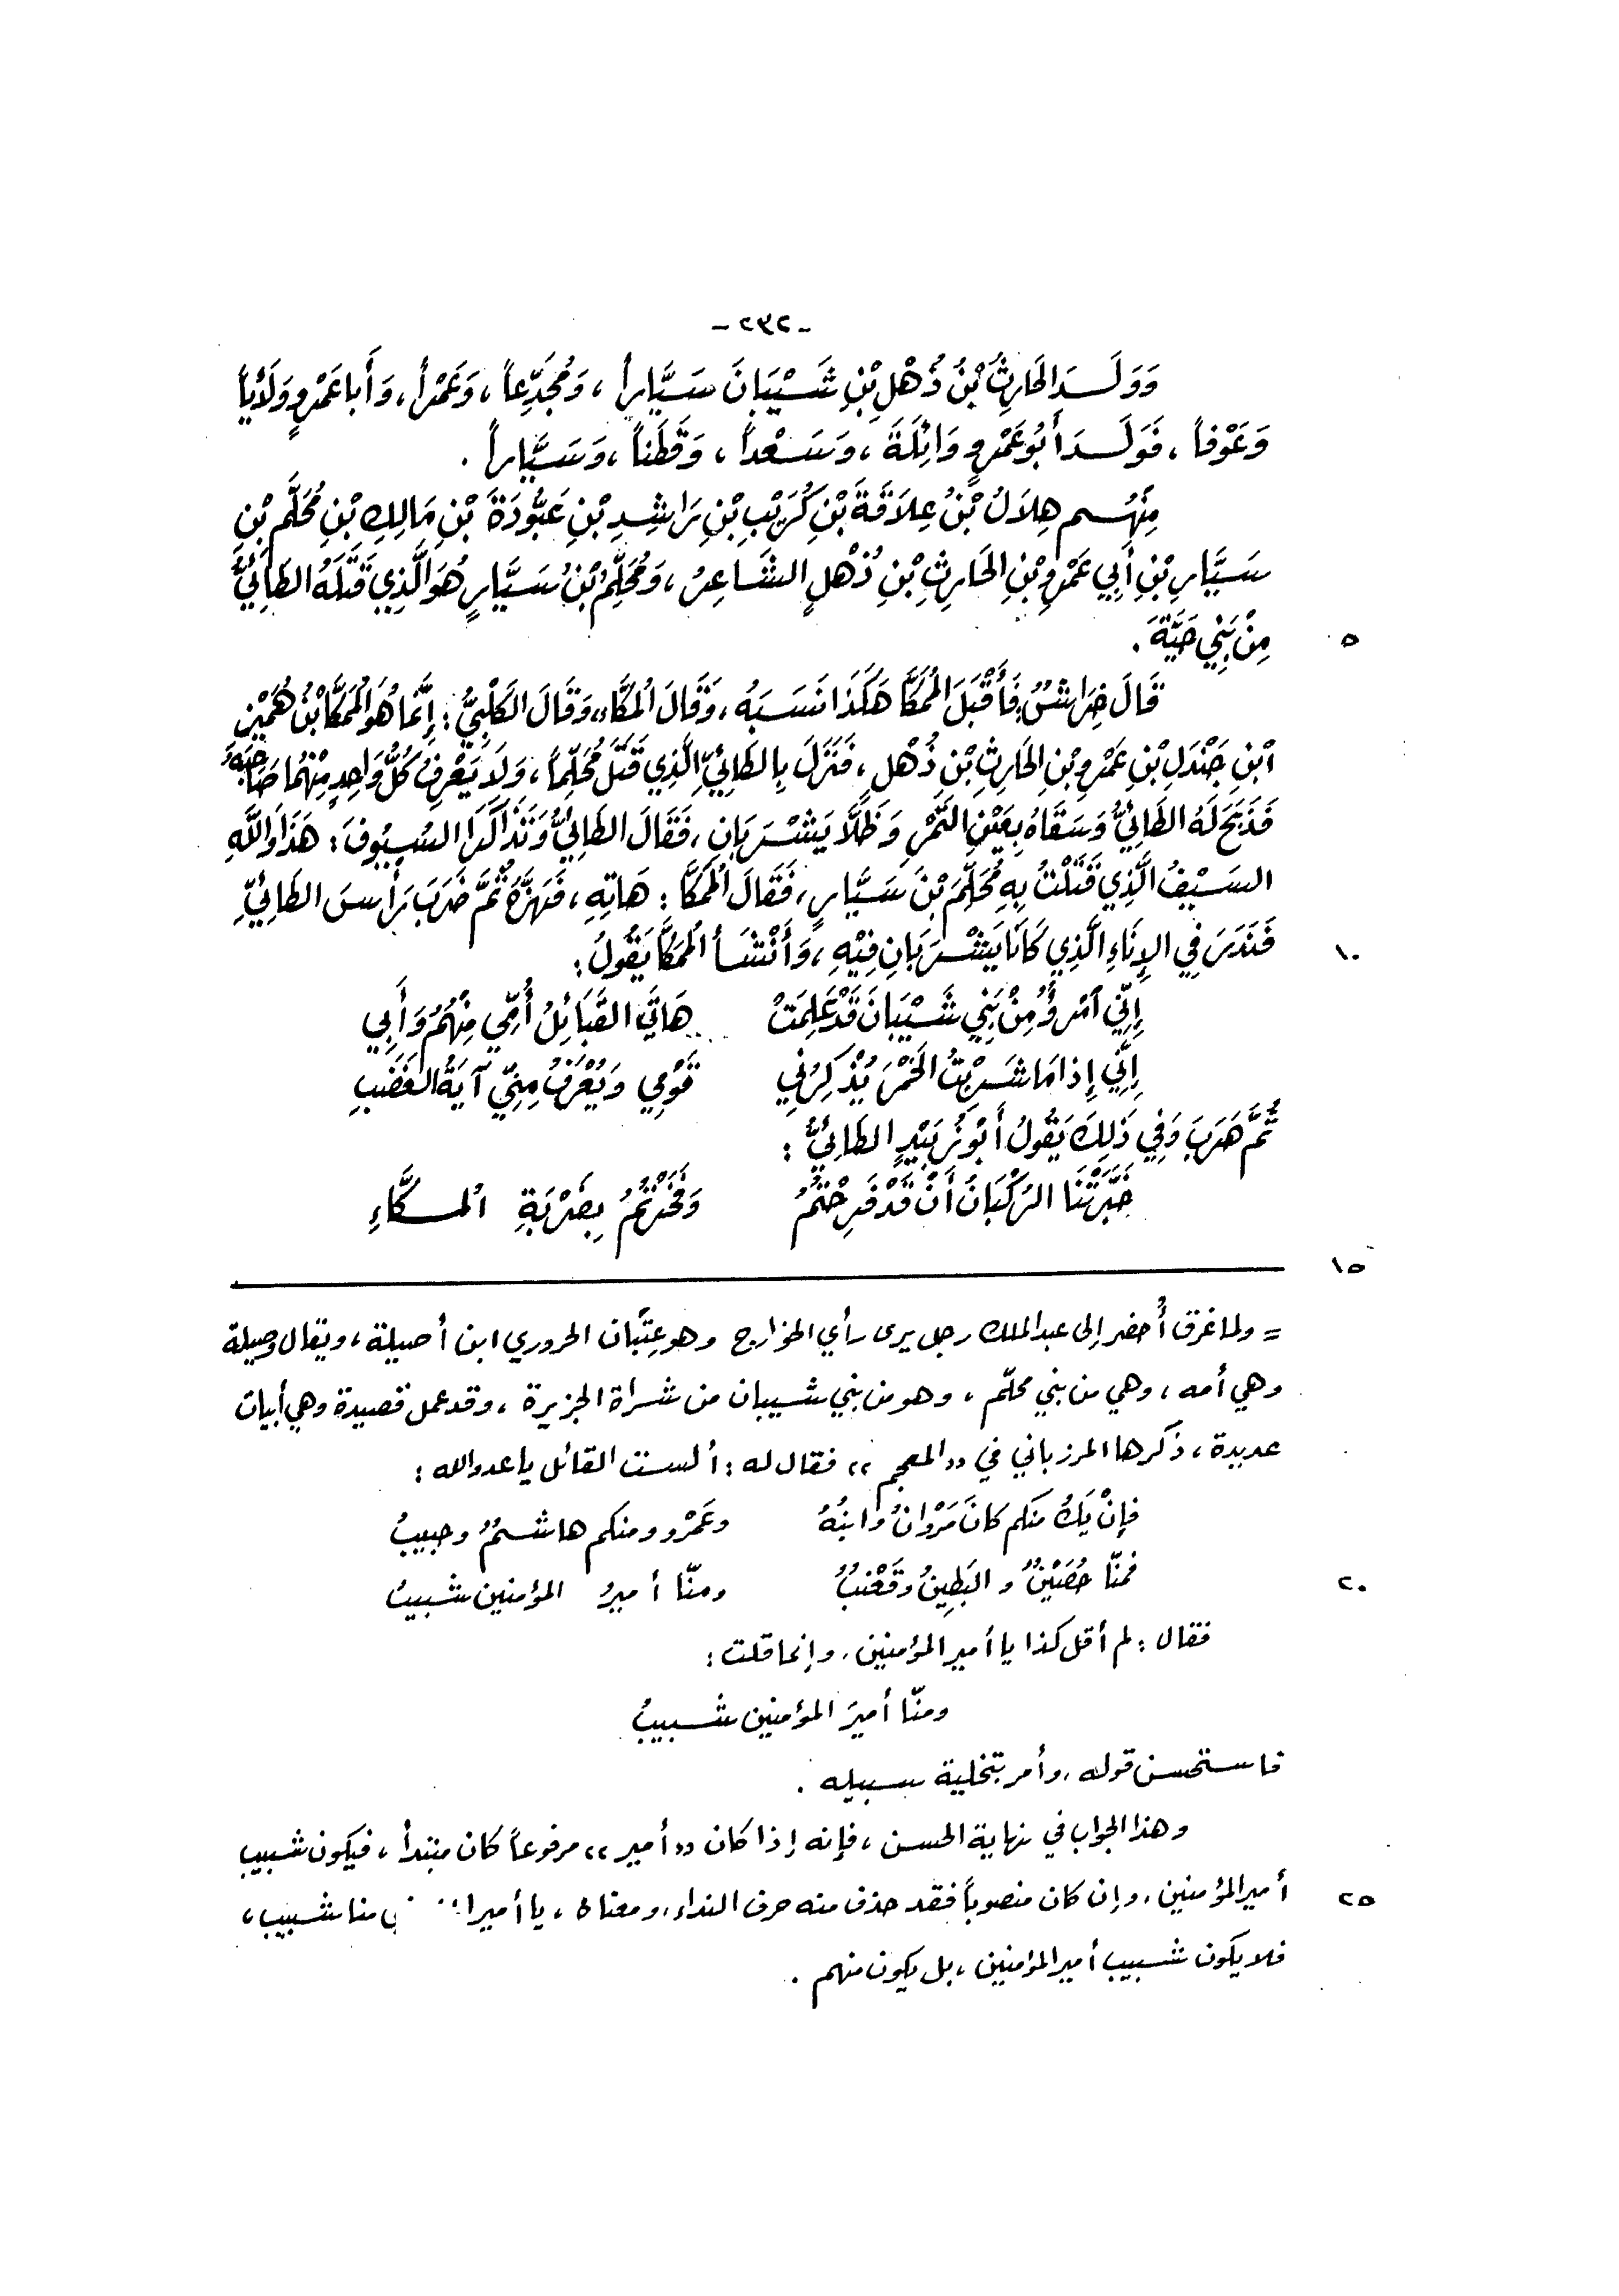 - ٢٣٢ -
وَوَلَدَ الحَارِثُ بْنُ ذُهْلِ بْنِ شَيْبَانَ سَيَّاراً ، وَمُجَدِّعاً ، وَعَمْراً ، وَأَبا عَمْرٍو وَلَأْياً
وَعَوْفاً ، فَوَلَدَ أَبُو عَمْرٍو وَائِلَةَ ، وَسَعْداً ، وَقَطَناً ، وَسَيَّاراً .
مِنْهُم هِلَالُ بْنُ عِلَاقَةَ بْنِ كُرَيْبِ بْنِ رَاشِدِ بْنِ عَبُّودَةَ بْنِ مَالِكِ بْنِ مُحَلَّمِ بْنِ
سَيَّارِ بْنِ أَبِي عَمْرِو بْنِ الحَارِثِ بْنِ ذُهْلٍ الشَّاعِرُ ، وَمُحَلِّمُ بْنُ سَيَّارٍ هُوَ الَّذِي قَتَلَهُ الطَائِيُّ
مِنْ بَنِي حَيَّةَ . ٥
قَالَ خِرَاشٌ : فَأَقْبَلَ المُكَّا هَكَذَا نَسَبَهُ ، وَقَالَ المُكَّاء وَقَالَ الكَلْبِيُّ : إِنَّمَا هُوَ المُكَّا بْنُ هُمَيْنِ
ابْنِ جَنْدَلِ بْنِ عَمْرِو بْنِ الحَارِثِ بْنِ ذُهْلٍ ، فَنَزَلَ بِالطَائِيِّ الَّذِي قَتَلَ مُحَلِّماً ، وَلَا يَعْرِفُ كُلُّ وَاحِدٍ مِنْهُمَا صَاحِبَهُ
فَذَبَحَ لَهُ الطَائِيُّ وَسَقَاهُ بِعَيْنِ التَمْرِ وَظَلَّا يَشْرَبَانِ ، فَقَالَ الطَائِيُّ وَتَذَاكَرَا السُيُوفَ : هَذَا وَاللَّهِ
السَيْفُ الَّذِي قَتَلْتُ بِهِ مُحَلِّمَ بْنَ سَيَّارٍ ، فَقَالَ المُكَّا : هَاتِهِ ، فَهَزَّهُ ثُمَّ ضَرَبَ رَأْسَ الطَائِيِّ
فَنَدَرَ فِي الإِنَاءِ الَّذِي كَانَا يَشْرَبَانِ فِيْهِ ، وَأَنْشَأَ المُكَّا يَقُولُ : ١٠
إِنِّي امْرُؤٌ مِنْ بَنِي شَيْبَانَ قَدْ عَلِمَتْ هَاتَي القَبَائِلُ أُمِّي مِنْهُمُ وَأَبِي
إِنِّي إِذَا مَا شَرِبْتُ الخَمْرَ يُذْكِرُنِي قَوْمِي وَيُعْرَفُ مِنِّي آيَةُ الغَضَبِ
ثُمَّ هَرَبَ وَفِي ذَلِكَ يَقُولُ أَبُو زُبَيْدٍ الطَائِيُّ :
خَبَّرَتْنَا الرُكْبَانُ أَنْ قَدْ فَرِحْتُمُ وَفَخَرْتُمُ بِضَرْبَةِ المُكَّاءِ
١٥
= ولما غرق أُحضر إلى عبد الملك رجل يرى رأي الخوارج وهو عِتبَان الحروري ابن أصيلة ، ويقال وصيلة
وهي أمه ، وهي من بني محلّم ، وهو من بني شيبان من شراة الجزيرة ، وقد عمل قصيدة وهي أبيات
عديدة ، ذكرها المرزباني في «المعجم» فقال له : ألست القائل يا عدو الله :
فإنْ يَكُ منكم كانَ مَرْوانُ وابنُهُ وعَمْرو ومنكم هاشمٌ وحبيبُ
فمنّا حُصَيْنٌ والبَطِينُ وقَعْنبٌ ومنّا أميرُ المؤمنين شبيبُ ٢٠
فقال : لم أقل كذا يا أمير المؤمنين ، وإنما قلت :
ومنّا أميرَ المؤمنين شبيبُ
فاستحسن قوله ، وأمر بتخلية سبيله .
وهذا الجواب في نهاية الحسن ، فإنه إذا كان «أمير» مرفوعاً كان مبتدأ ، فيكون شبيب
أمير المؤمنين ، وإن كان منصوباً فقد حذف منه حرف النداء ، ومعناه ، يا أمير منا شبيب ، ٢٥
فلا يكون شبيب أمير المؤمنين ، بل يكون منهم .